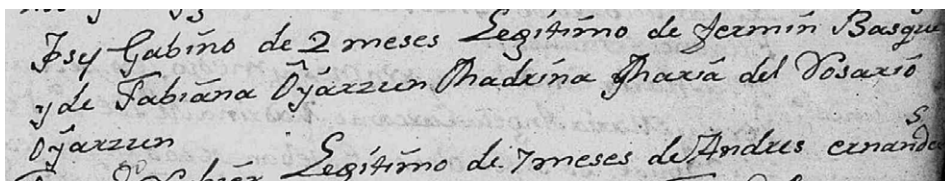 Jsey Gabino de 2 meses Legitimo de Fermin Basque
y de Fabiana Oyarzun Madrina Maria del Rosario
Oyarzun
Legitimo de 7 meses de Andres ernandes